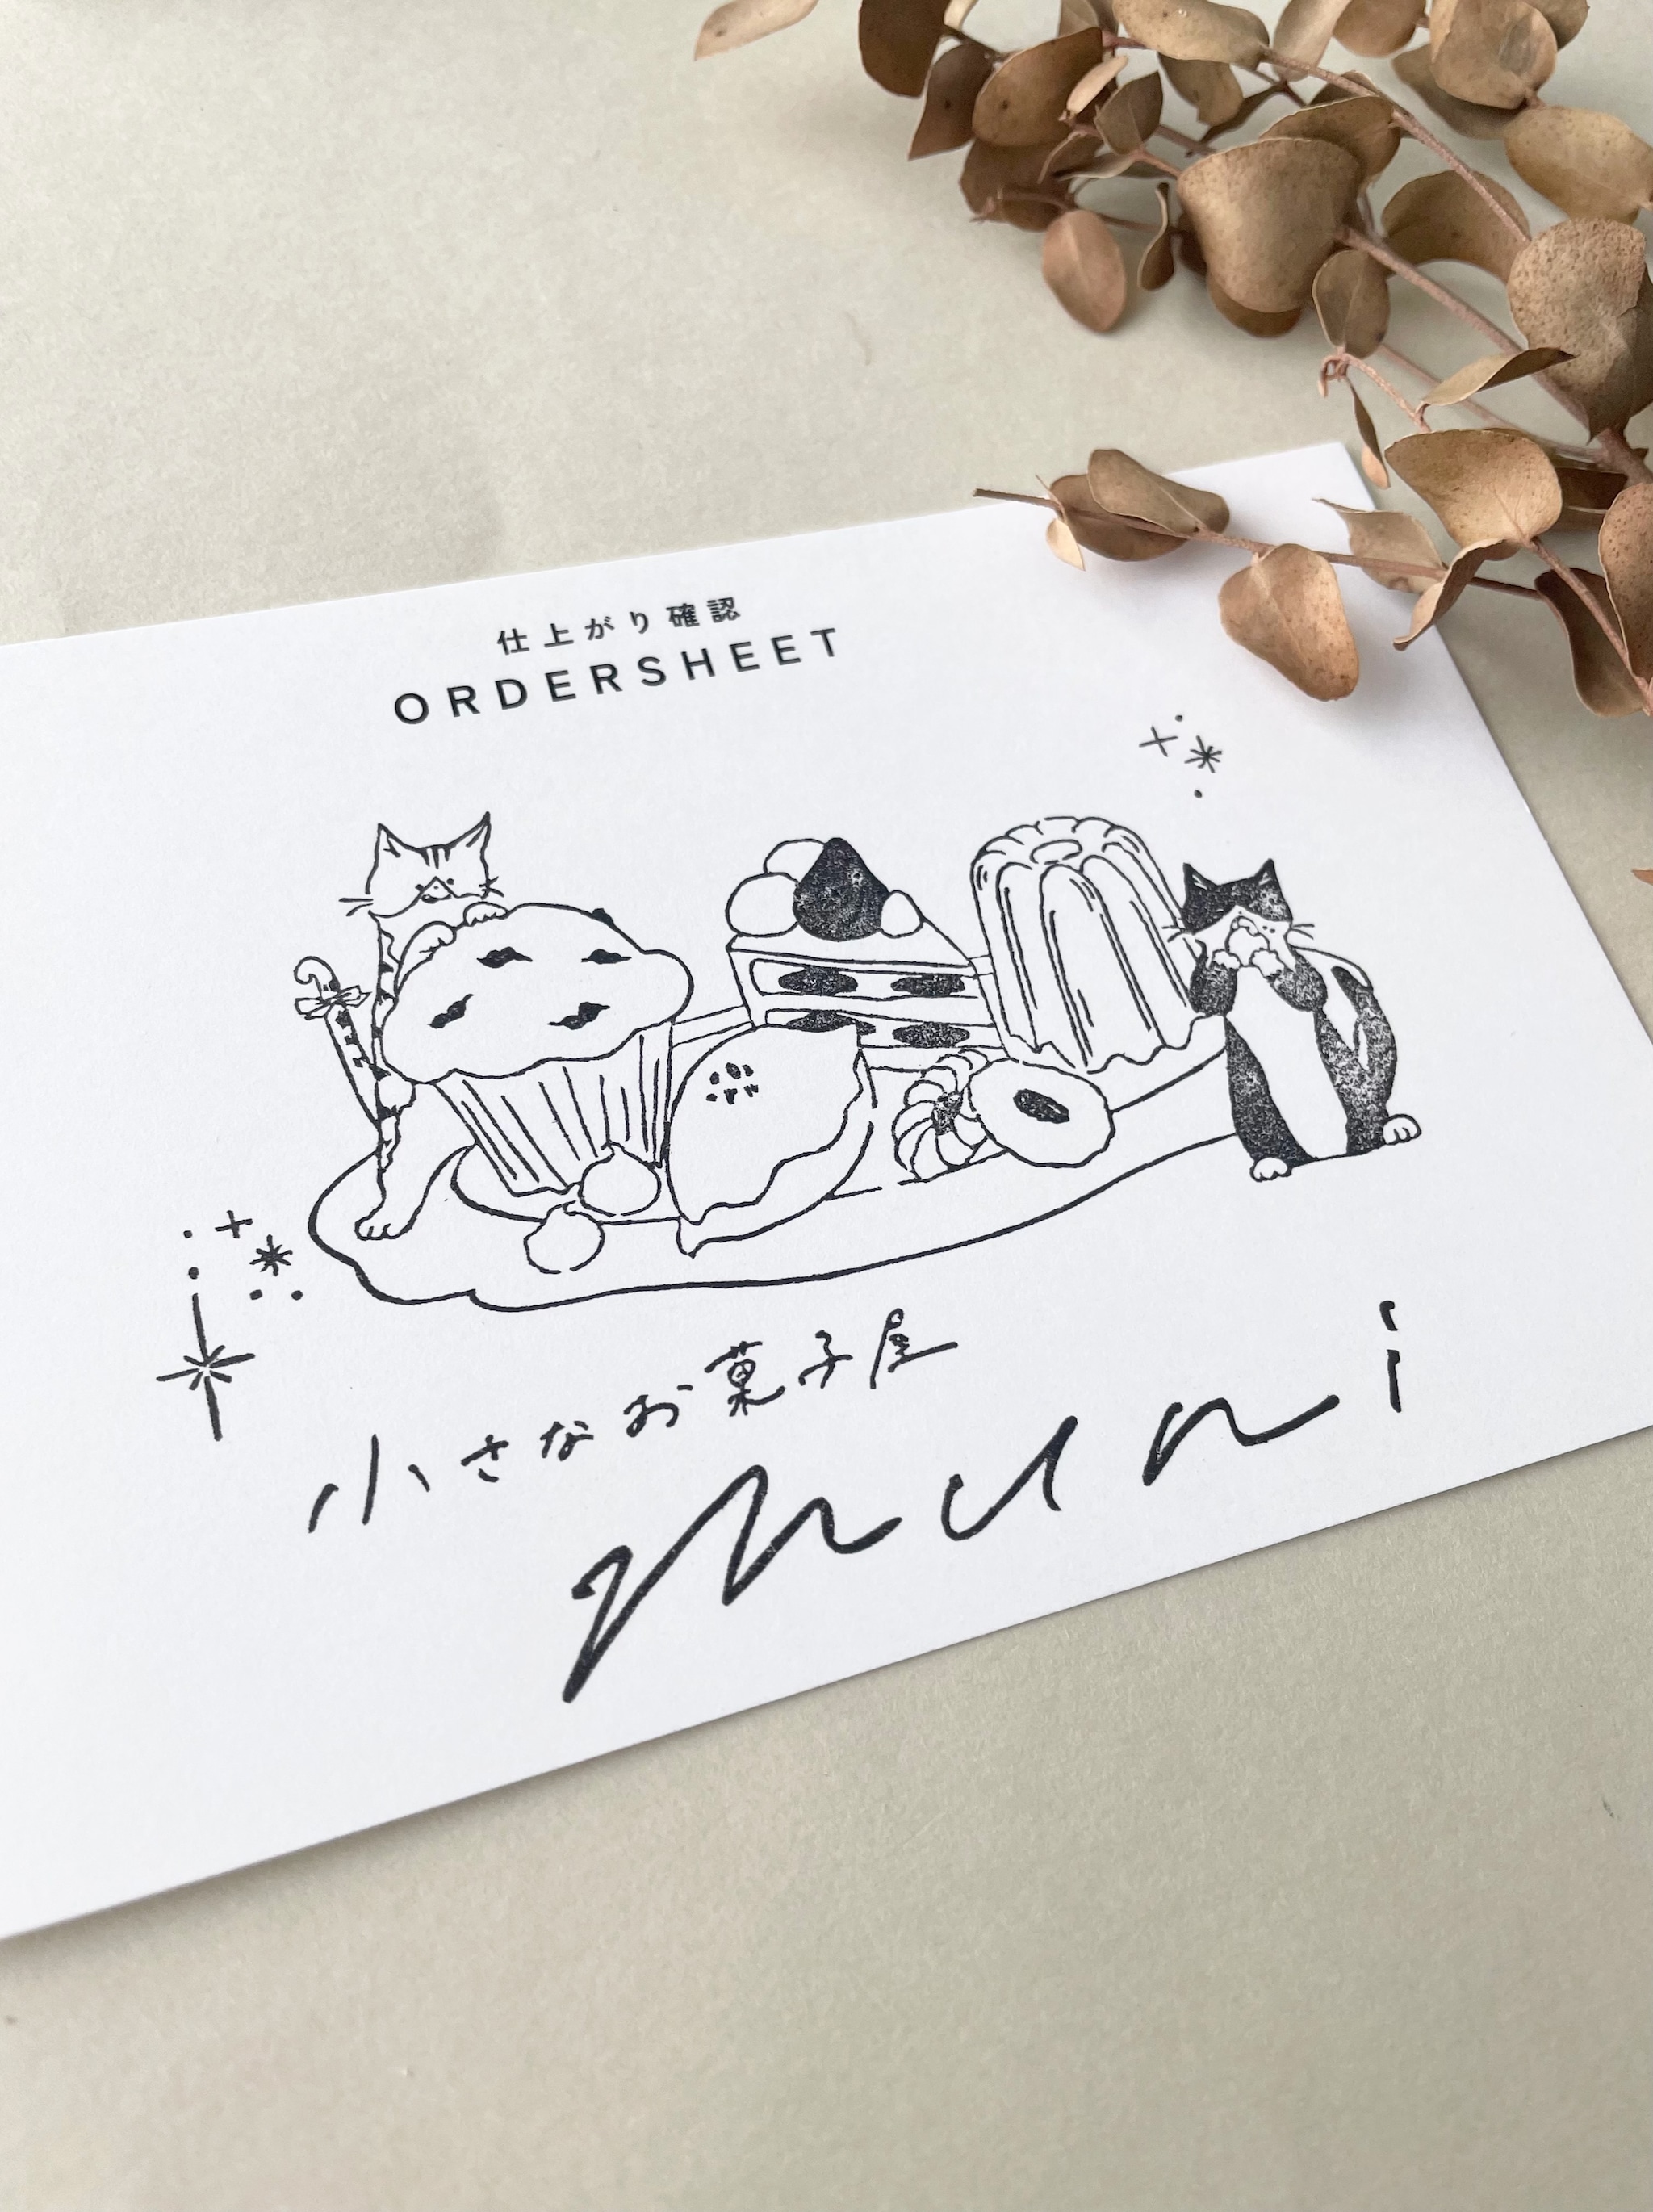 仕上がり確認
ORDERSHEET
小さなお菓子屋
muni